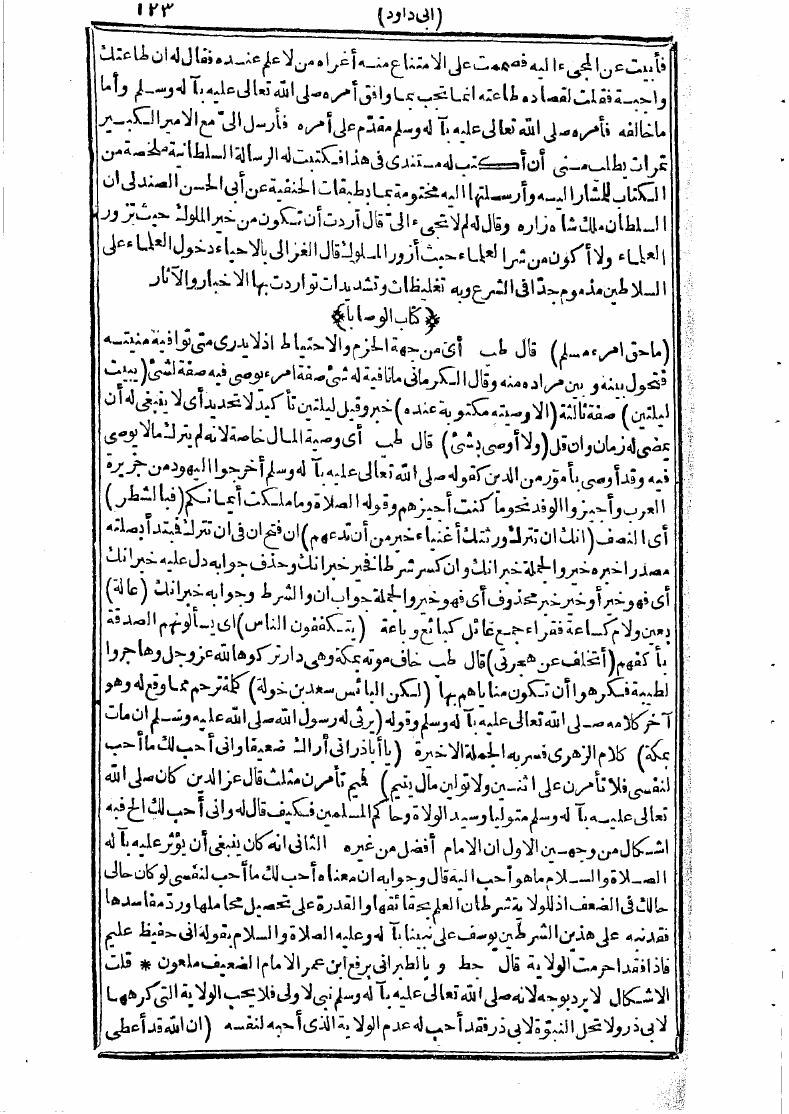 (ابى داود) ١٢٣
فأبيت عن المجىء اليه فصممت على الامتناع منه أغراه من لاعلم عنده فقال له ان طاعتك
واجبة فقلت لقصاده طاعته انما تجب بما وافق أمره صلى الله تعالى عليه بآ له وسلم وأما
ماخالفه فأمره صلى الله تعالى عليه بآ له وسلم مقدّم على أمره فأرسل الىّ مع الامير الكبير
تمرات يطلب منى أن أكتب له مستندى فى هذا فكتبت له الرسالة السلطانية ملخصة من
الكتاب المشار اليه وأرسلتها اليه مختومة بما بطبقات الحنفية عن أبى الحسن الصندلى ان
السلطان ملك شاه زاره وقال له لم لاتجىء الىّ قال أردت أن تكون من خير الملوك حيث تزور
العلماء ولا أكون من شرار العلماء حيث أزور الملوك قال الغزالى بالاحياء دخول العلماء على
السلاطين مذموم جدّا فى الشرع وبه تغليظات وتشديدات تواردت بها الاخبار والآثار
﴿كتاب الوصايا﴾
(ماحق امرء مسلم) قال طب أى من جهة الحزم والاحتياط اذلايدرى متى توافيه منيته
فتحول بينه وبين مراده منه وقال الكرمانى مانافية له شئ صفة امرء يوصى فيه صفة لشئ (يبيت
ليلتين) صفة ثالثة (الاوصيته مكتوبة عنده) خبر وقيل ليلتين تأكيد لاتحديد أى لاينبغى له أن
يمضى له زمان وان قل (ولا أوصى بشئ) قال طب أى وصية المال خاصة لانه لم يترك مالايوصى
فيه وقد أوصى بأمور من الدين كقوله صلى الله تعالى عليه بآ له وسلم أخرجوا اليهود من جزيرة
العرب وأجيزوا الوفد نحوما كنت أجيزهم وقوله الصلاة وماملكت أيمانكم (فبالشطر)
أى النصف (انك ان تترك ورثتك أغنياء خير من أن تدعهم) ان فتح ان فى ان تترك فبتدأ بصلته
مصدرا خبره خير والجملة خبر انك وان كسر شرطا فخير خبر انك وحذف جوابه دل عليه خبر انك
أى فهو خير أو خير خبر محذوف أى فهو خير والجملة جواب ان والشرط وجوابه خبر انك (عالة)
بعين ولام كساعة فقراء جمع عائل كبائع وباعة (يتكففون الناس) اى يسألونهم الصدقة
بأكفهم (أتخلف عن هجرتى) قال طب خاف موته بمكة وهى دار تركوها لله عز وجل وهاجروا
لطيبة فكرهوا أن تكون مناياهم بها (لكن البائس سعد بن خولة) كلمة ترحم مما وقع له وهو
آخر كلامه صلى الله تعالى عليه بآ له وسلم وقوله (يرثى له رسول الله صلى الله عليه وسلم ان مات
بمكة) كلام الزهرى فسر به الجملة الاخيرة (ياأباذر انى أراك ضعيفا وانى أحب لك ماأحب
لنفسى فلاتأمرن على اثنين ولاتولين مال يتيم) فميم تأمرن مثلث قال عز الدين كان صلى الله
تعالى عليه بآ له وسلم متوليا وسيد الولاة وحاكم المسلمين فكيف قال له وانى أحب لك الخ فيه
اشكال من وجهين الاول ان الامام أفضل من غيره الثانى انه كان ينبغى أن يؤثر عليه بآ له
الصلاة والسلام ماهو أحب اليه قال وجوابه ان معناه أحب لك ماأحب لنفسى لو كان حالى
حالك فى الضعف اذ للولاية شرطان العلم بحقائقها والقدرة على تحصيل محاملها وردّ مفاسدها
فقد نبه على هذين الشرطين يوسف على نبينا بآ له وعليه الصلاة والسلام بقوله انى حفيظ عليم
فاذا فقدا حرمت الولاية قال حط وبالطبرانى برفع ابن عمر الامام الضعيف ملعون * قلت
الاشكال لايرد بوجه لانه صلى الله تعالى عليه بآ له وسلم نبى لاولى فلايحب الولاية التى كرهها
لابى ذر ولاتحل النبوّة لابى ذر فقد أحب له عدم الولاية الذى أحبه لنفسه (ان الله قد أعطى